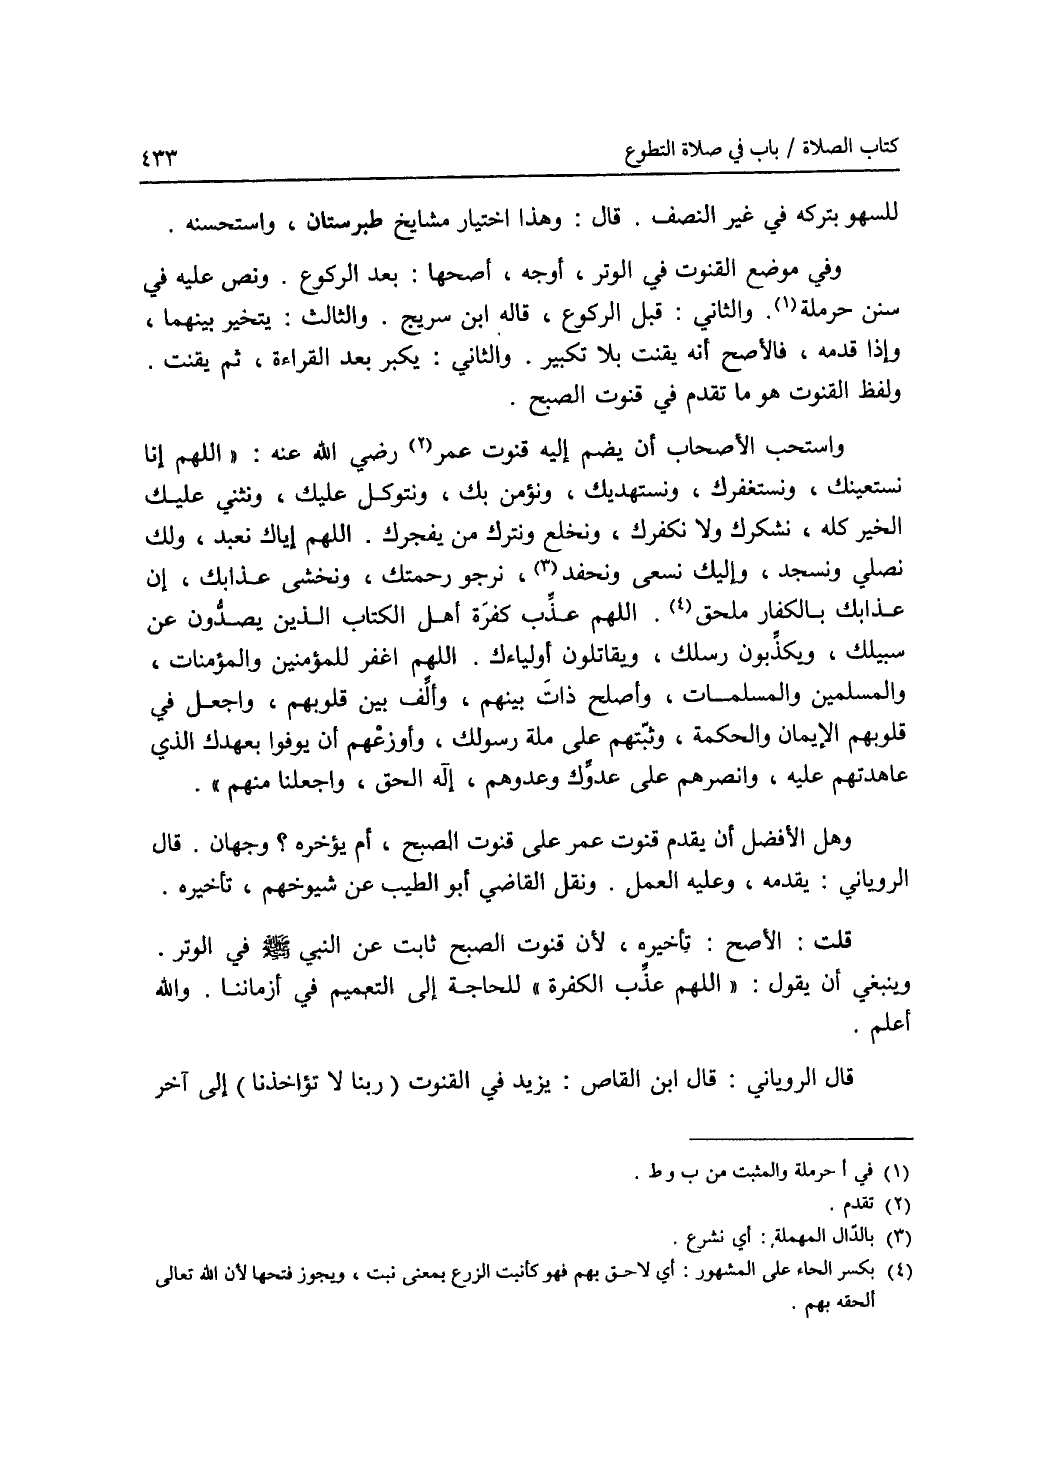 كتاب الصلاة / باب في صلاة التطوع ٤٣٣
للسهو بتركه في غير النصف . قال : وهذا اختيار مشايخ طبرستان ، واستحسنه .
وفي موضع القنوت في الوتر ، أوجه ، أصحها : بعد الركوع . ونص عليه في
سنن حرملة(١). والثاني : قبل الركوع ، قاله ابن سريج . والثالث : يتخير بينهما ،
وإذا قدمه ، فالأصح أنه يقنت بلا تكبير . والثاني : يكبر بعد القراءة ، ثم يقنت .
ولفظ القنوت هو ما تقدم في قنوت الصبح .
واستحب الأصحاب أن يضم إليه قنوت عمر(٢) رضي الله عنه : « اللهم إنا
نستعينك ، ونستغفرك ، ونستهديك ، ونؤمن بك ، ونتوكل عليك ، ونثني عليك
الخير كله ، نشكرك ولا نكفرك ، ونخلع ونترك من يفجرك . اللهم إياك نعبد ، ولك
نصلي ونسجد ، وإليك نسعى ونحفد(٣) ، نرجو رحمتك ، ونخشى عذابك ، إن
عذابك بالكفار ملحق(٤) . اللهم عذِّب كفرَة أهل الكتاب الذين يصدُّون عن
سبيلك ، ويكذِّبون رسلك ، ويقاتلون أولياءك . اللهم اغفر للمؤمنين والمؤمنات ،
والمسلمين والمسلمات ، وأصلح ذاتَ بينهم ، وألِّف بين قلوبهم ، واجعل في
قلوبهم الإيمان والحكمة ، وثبّتهم على ملة رسولك ، وأوزعْهم أن يوفوا بعهدك الذي
عاهدتهم عليه ، وانصرهم على عدوِّك وعدوهم ، إلَه الحق ، واجعلنا منهم » .
وهل الأفضل أن يقدم قنوت عمر على قنوت الصبح ، أم يؤخره ؟ وجهان . قال
الروياني : يقدمه ، وعليه العمل . ونقل القاضي أبو الطيب عن شيوخهم ، تأخيره .
قلت : الأصح : تأخيره ، لأن قنوت الصبح ثابت عن النبي ﷺ في الوتر .
وينبغي أن يقول : « اللهم عذِّب الكفرة » للحاجة إلى التعميم في أزماننا . والله
أعلم .
قال الروياني : قال ابن القاص : يزيد في القنوت ( ربنا لا تؤاخذنا ) إلى آخر
(١) في أ حرملة والمثبت من ب و ط .
(٢) تقدم .
(٣) بالدّال المهملة : أي نشرع .
(٤) بكسر الحاء على المشهور : أي لاحق بهم فهو كأنبت الزرع بمعنى نبت ، ويجوز فتحها لأن الله تعالى
ألحقه بهم .